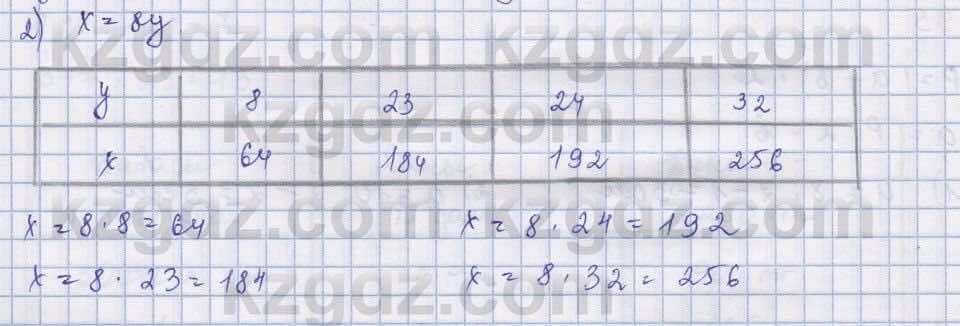 2) x = 8y
y 8 23 24 32
x 64 184 192 256
x = 8 · 8 = 64 x = 8 · 24 = 192
x = 8 · 23 = 184 x = 8 · 32 = 256
kzgdz.com kzgdz.com
kzgdz.com
kzgdz.com kzgdz.com
kzgdz.com